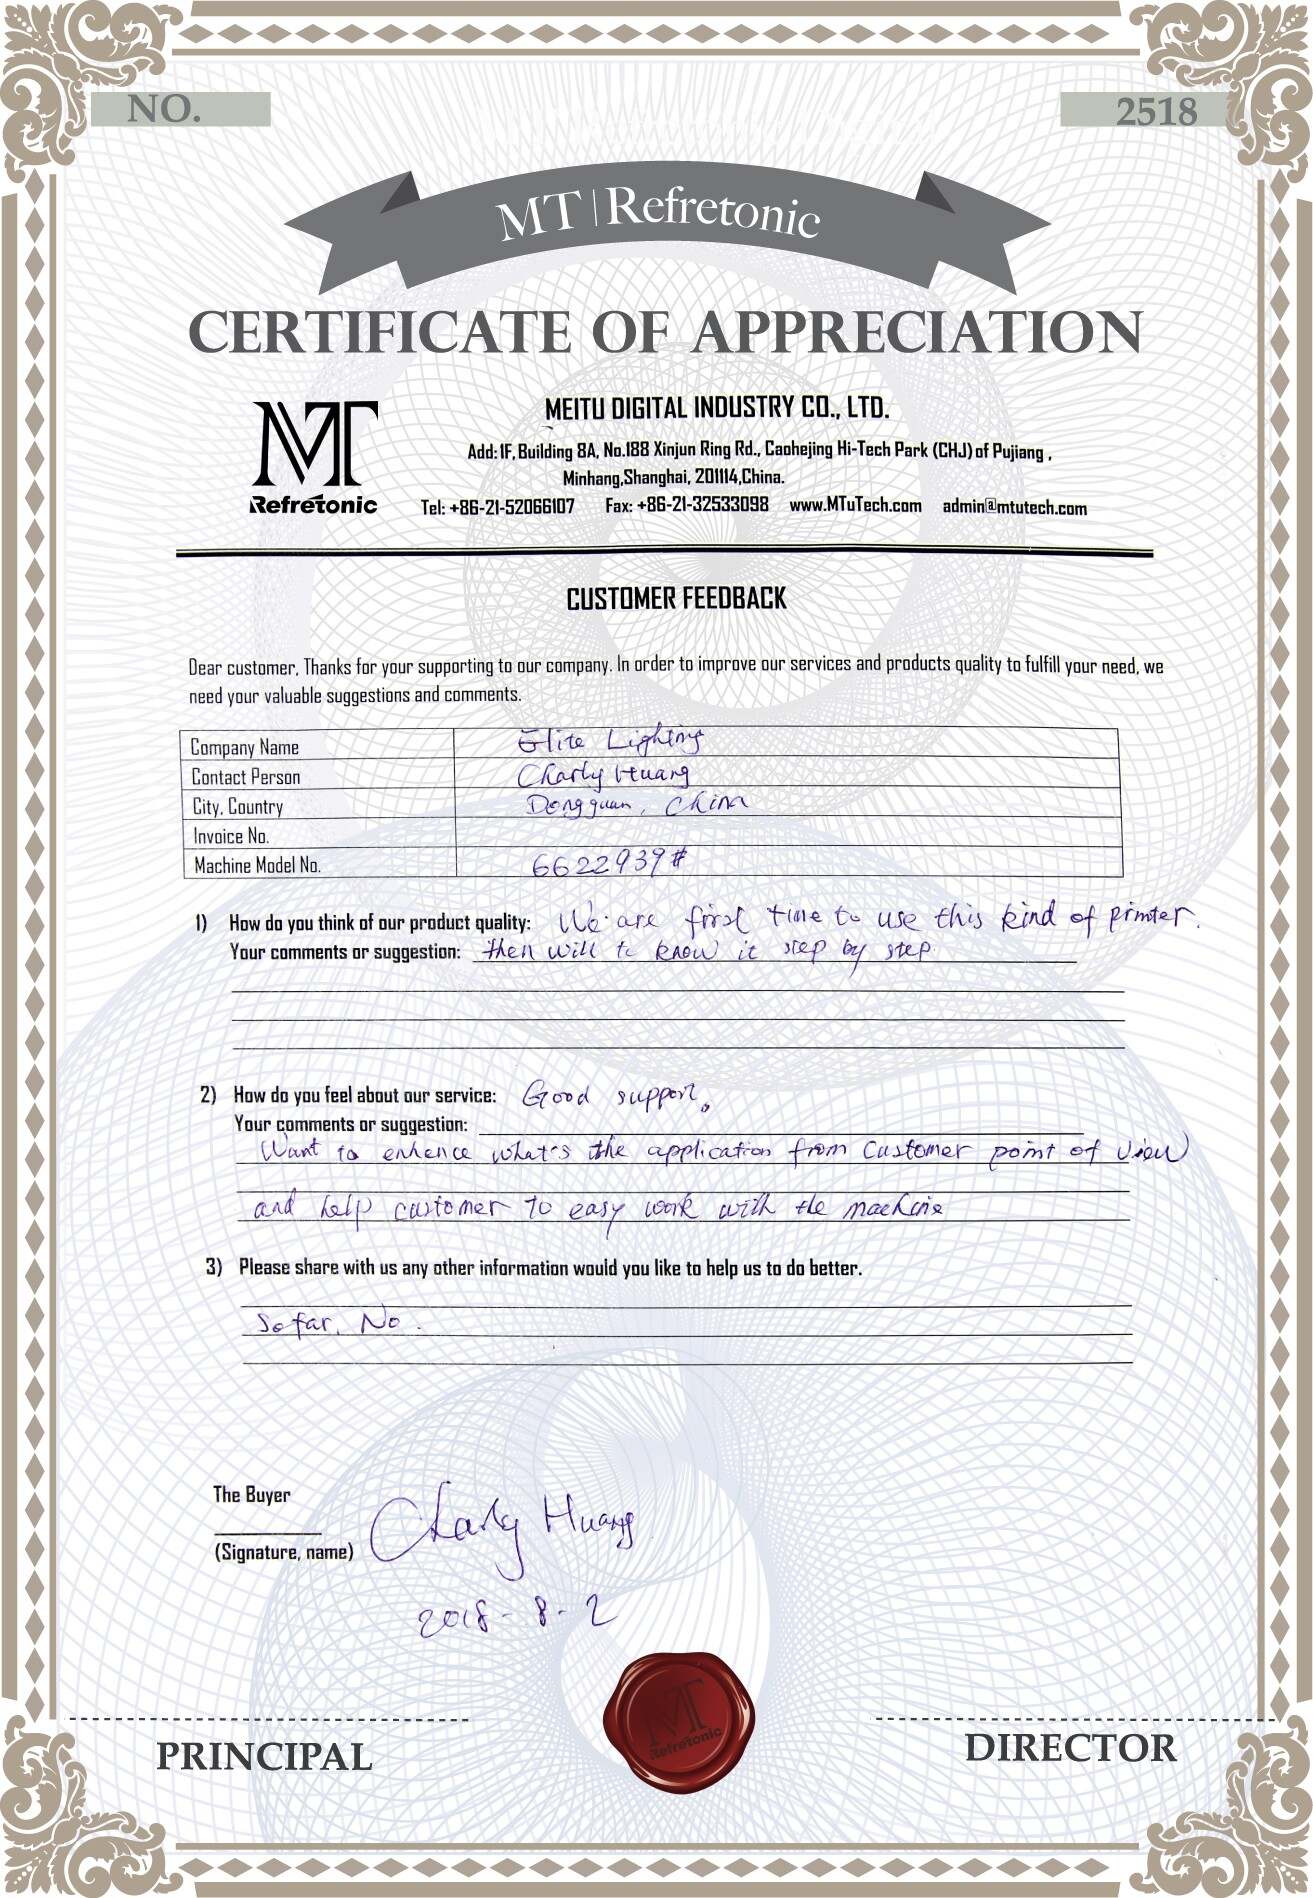 NO.
2518
MT | Refretonic
CERTIFICATE OF APPRECIATION
MT
Refretonic
MEITU DIGITAL INDUSTRY CO., LTD.
Add: 1F, Building 8A, No.188 Xinjun Ring Rd., Caohejing Hi-Tech Park (CHJ) of Pujiang ,
Minhang,Shanghai, 201114,China.
Tel: +86-21-52066107 Fax: +86-21-32533098 www.MTuTech.com admin@mtutech.com
CUSTOMER FEEDBACK
Dear customer, Thanks for your supporting to our company. In order to improve our services and products quality to fulfill your need, we
need your valuable suggestions and comments.
Company Name Elite Lighting
Contact Person Charly Huang
City, Country Dongguan, China
Invoice No.
Machine Model No. 6622939#
1) How do you think of our product quality: We are first time to use this kind of printer.
Your comments or suggestion: then will to know it step by step.
2) How do you feel about our service: Good support.
Your comments or suggestion:
Want to enhence what's the application from customer point of view
and help customer to easy work with the machine
3) Please share with us any other information would you like to help us to do better.
So far, No.
The Buyer
(Signature, name) Charly Huang
2018-8-2
MT
Refretonic
PRINCIPAL
DIRECTOR